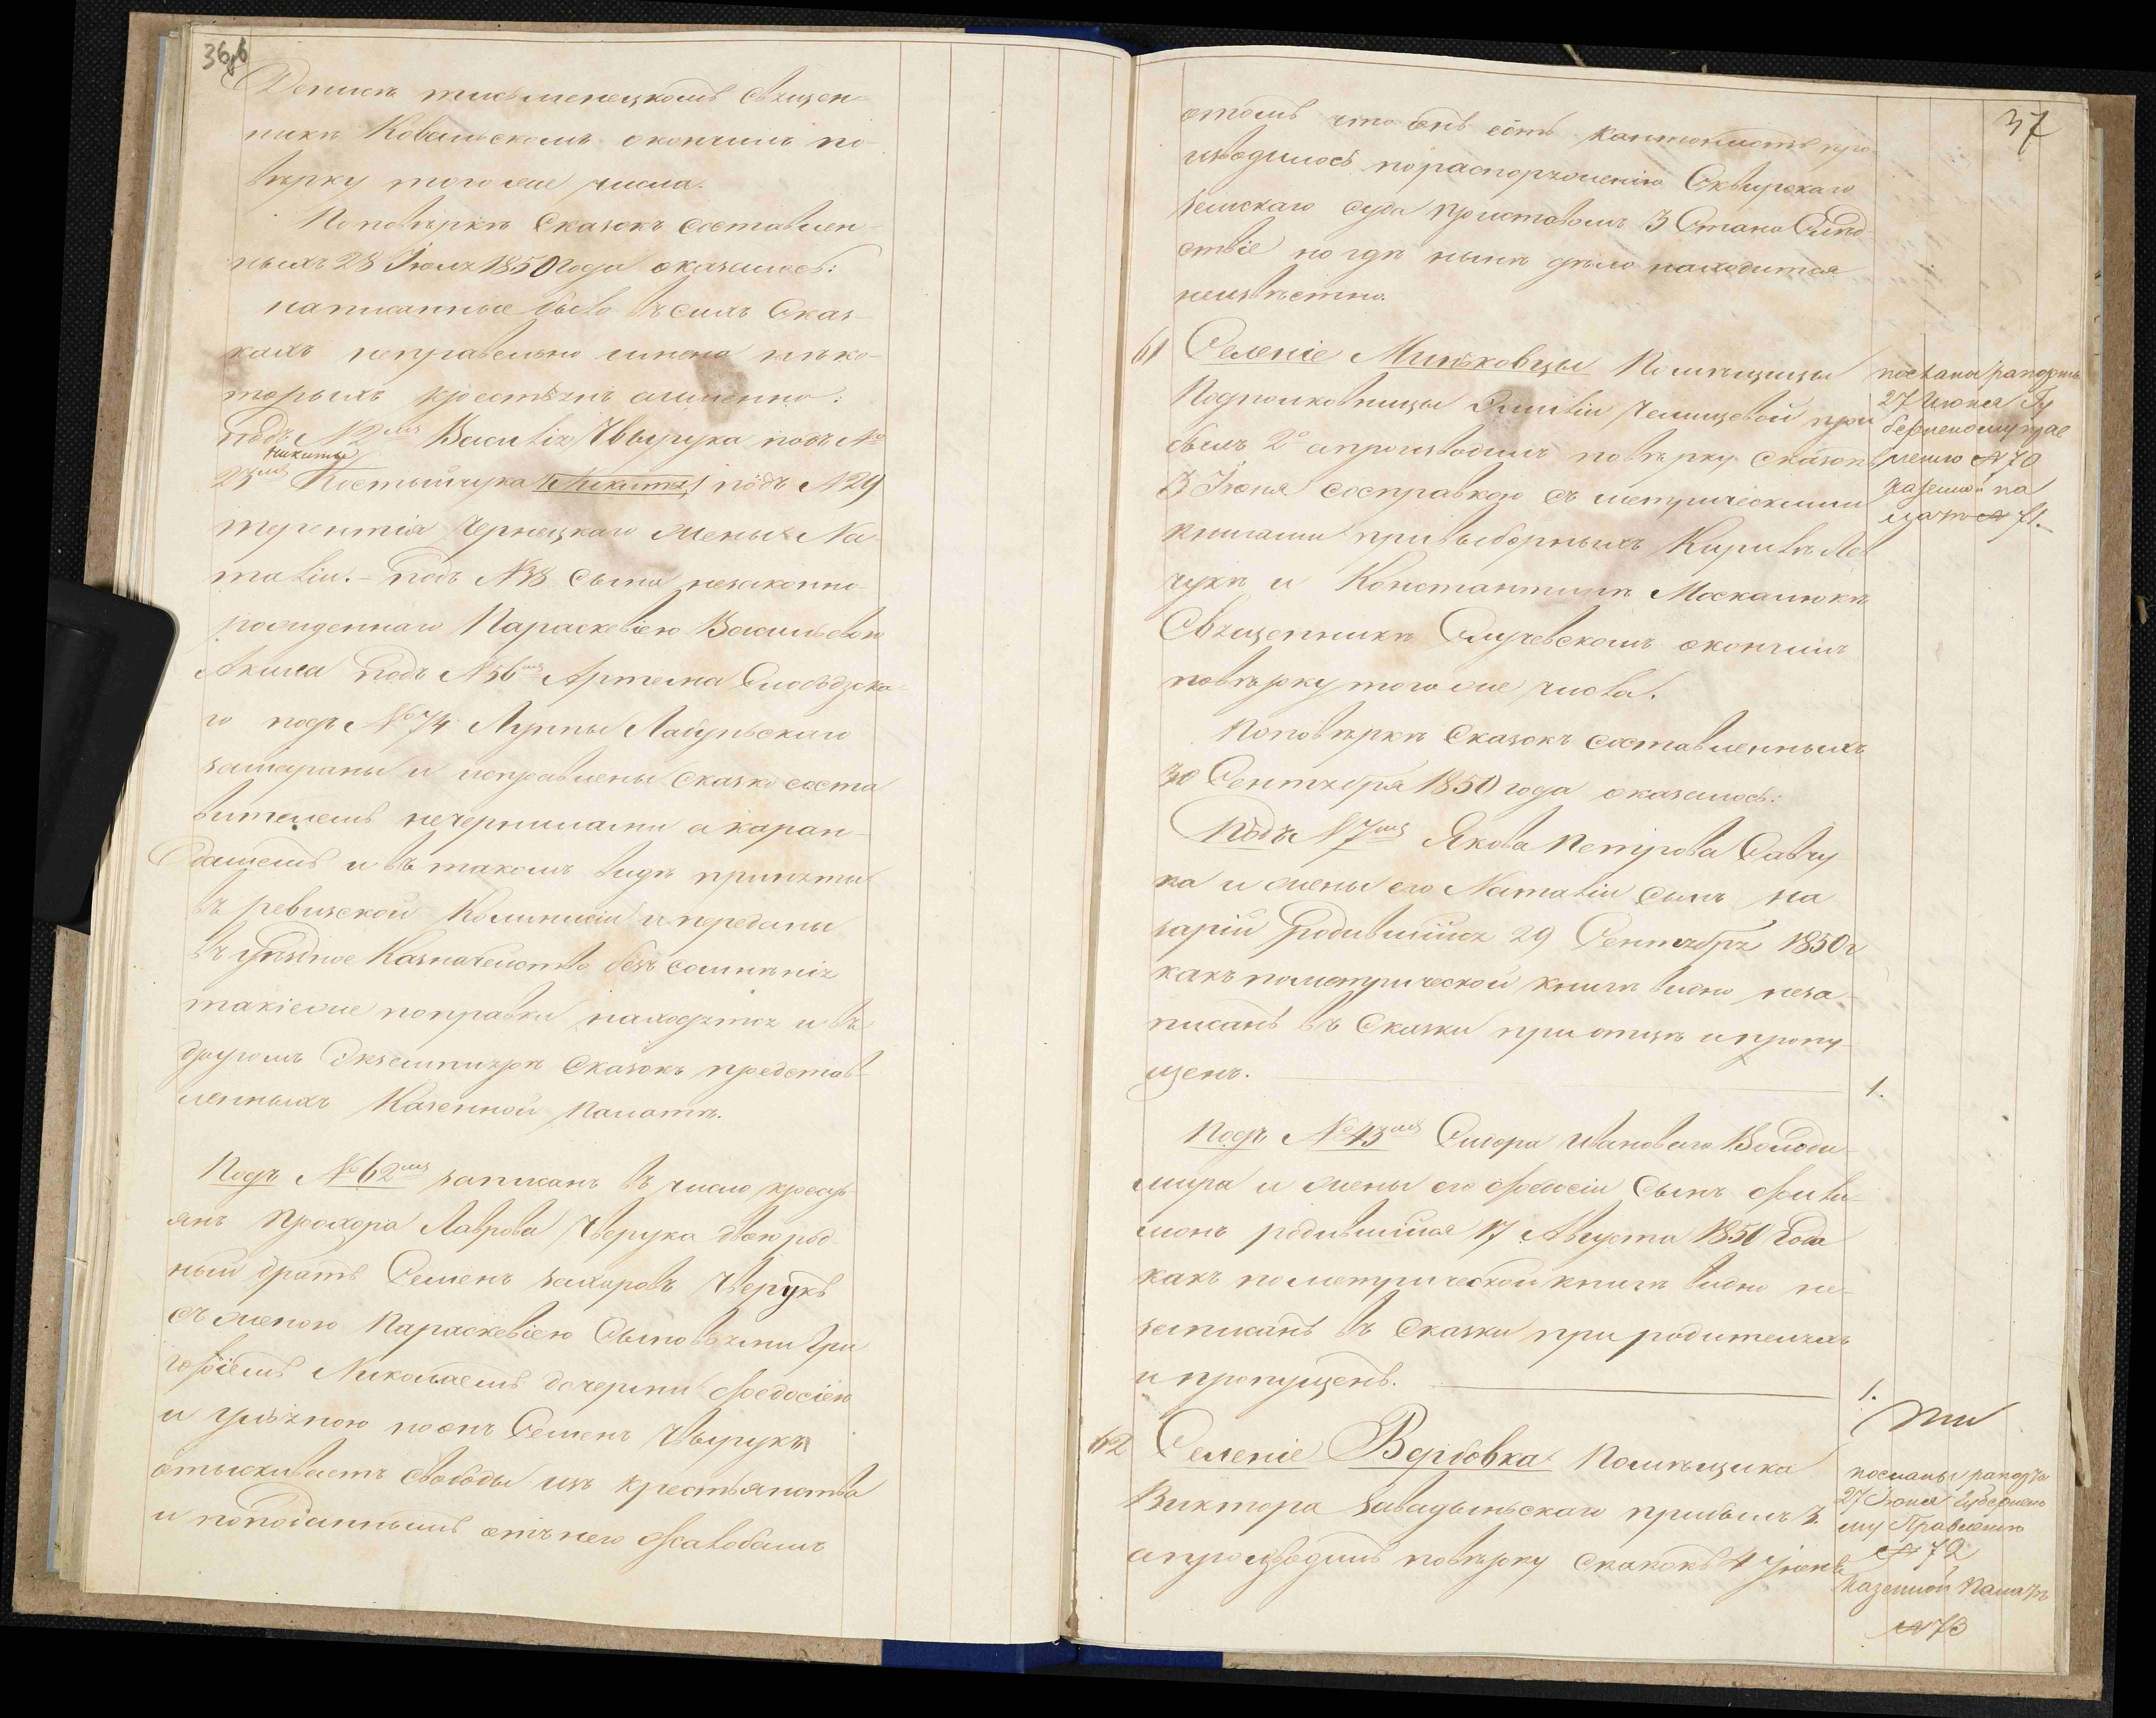 36об
Дениса тисьменецкомъ Священ-
никѣ Ковальскомъ окончилъ по-
вѣрку того же числа.
По повѣркѣ Сказокъ составлен-
ныхъ 28 Іюля 1850 года оказалось:
написанные было въ сихъ Сказ-
кахъ неправельно имена нѣко-
торыхъ крестьянъ аименно:
подъ № 2мъ Василія Чвырука подъ №
Никиты
23мъ Костышука Никиты подъ № 29
терентія Чернецкаго жены На-
таліи. – подъ № 38 Сына незаконно-
рожденнаго Параскевіею Васильевою
Акима подъ № 56мъ Артема Слободзска-
го подъ № 74 Луппы Лабунскаго
затераны и исправлены Сказко соста
вителемъ нечернилами а каран-
дашемъ и въ такомъ видѣ приняты
въ ревизской Коммисіи и переданы
въ уѣздное Казначейство безъ сомнѣнія
такіеже поправки находятся и въ
другомъ Экземплярѣ Сказокъ представ-
ленныхъ Казенной палатѣ.
Подъ № 62мъ записанъ въ число кресть-
янъ Прохора Лаврова Чверука двоюрод-
ный братъ Семенъ Захаровъ Чверукъ
съ женою Параскевіею Сыновьями Гри
горіемъ Николаемъ дочерьми Феодосіею
и Ульяною но онъ Семенъ Чвырукъ
отыскиваетъ свободы изъ крестьянства
и поподаннымъ отъ него жалобамъ
37
отомъ что онъ есть кантонистъ про-
изводилось по распоряженію Сквирскаго
земскаго суда приставомъ 3 Стана Слѣд-
ствіе но гдѣ нынѣ дѣло находится
неизвѣстно.
61 Селеніе Миньковцы Помѣщицы
Подполковницы Эмиліи Чемицевой при
былъ 2о апроизводилъ повѣрку сказокъ
3 Іюня сосправкою съ метрическими
книгами при выборныхъ Кирилѣ Лев
чукѣ и Константинѣ Москалюкѣ
Священникѣ Случевскомъ окончилъ
повѣрку того же числа.
послана рапортъ
27 Июня Гу
бернскому прав
ленію № 70
Казенной па
латѣ № 71.
По повѣркѣ Сказокъ составленныхъ
30 Сентября 1850 года оказалось:
Подъ № 7мъ Якова Петрова Савчу-
ка и жены его Наталіи сынъ На
зарій родившійся 29 Сентября 1850 г
какъ пометрической книгѣ видно неза-
писанъ въ Сказки при отцѣ и пропу-
щенъ. 1.
Подъ № 43мъ Сидора Ивановаго Володи-
мира и жены его Феодосіи Сынъ Фили
монъ родившійся 17 Августа 1850 Года
какъ по метрической книгѣ видно не-
записанъ въ Сказки при родителяхъ
и пропущенъ. 1.
62 Селеніе Вербовка Помѣщика
Виктора Завадыньскаго прибылъ 3.
апроизводилъ повѣрку Сказокъ 4 Іюня
посланы рапорта
27 Іюня Губернско
му Правленію
№ 72
Казенной Палатѣ
№ 73